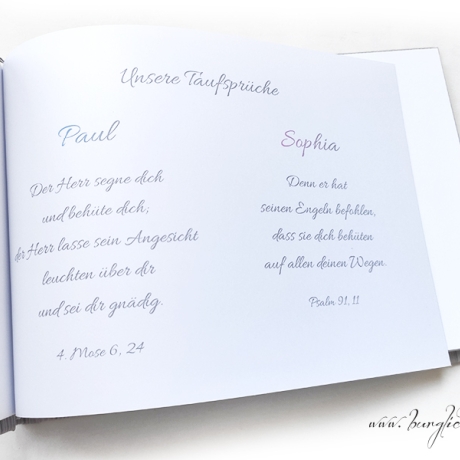 Unsere Taufsprüche
Paul
Der Herr segne dich
und behüte dich;
der Herr lasse sein Angesicht
leuchten über dir
und sei dir gnädig.
4. Mose 6, 24
Sophia
Denn er hat
seinen Engeln befohlen,
dass sie dich behüten
auf allen deinen Wegen.
Psalm 91, 11